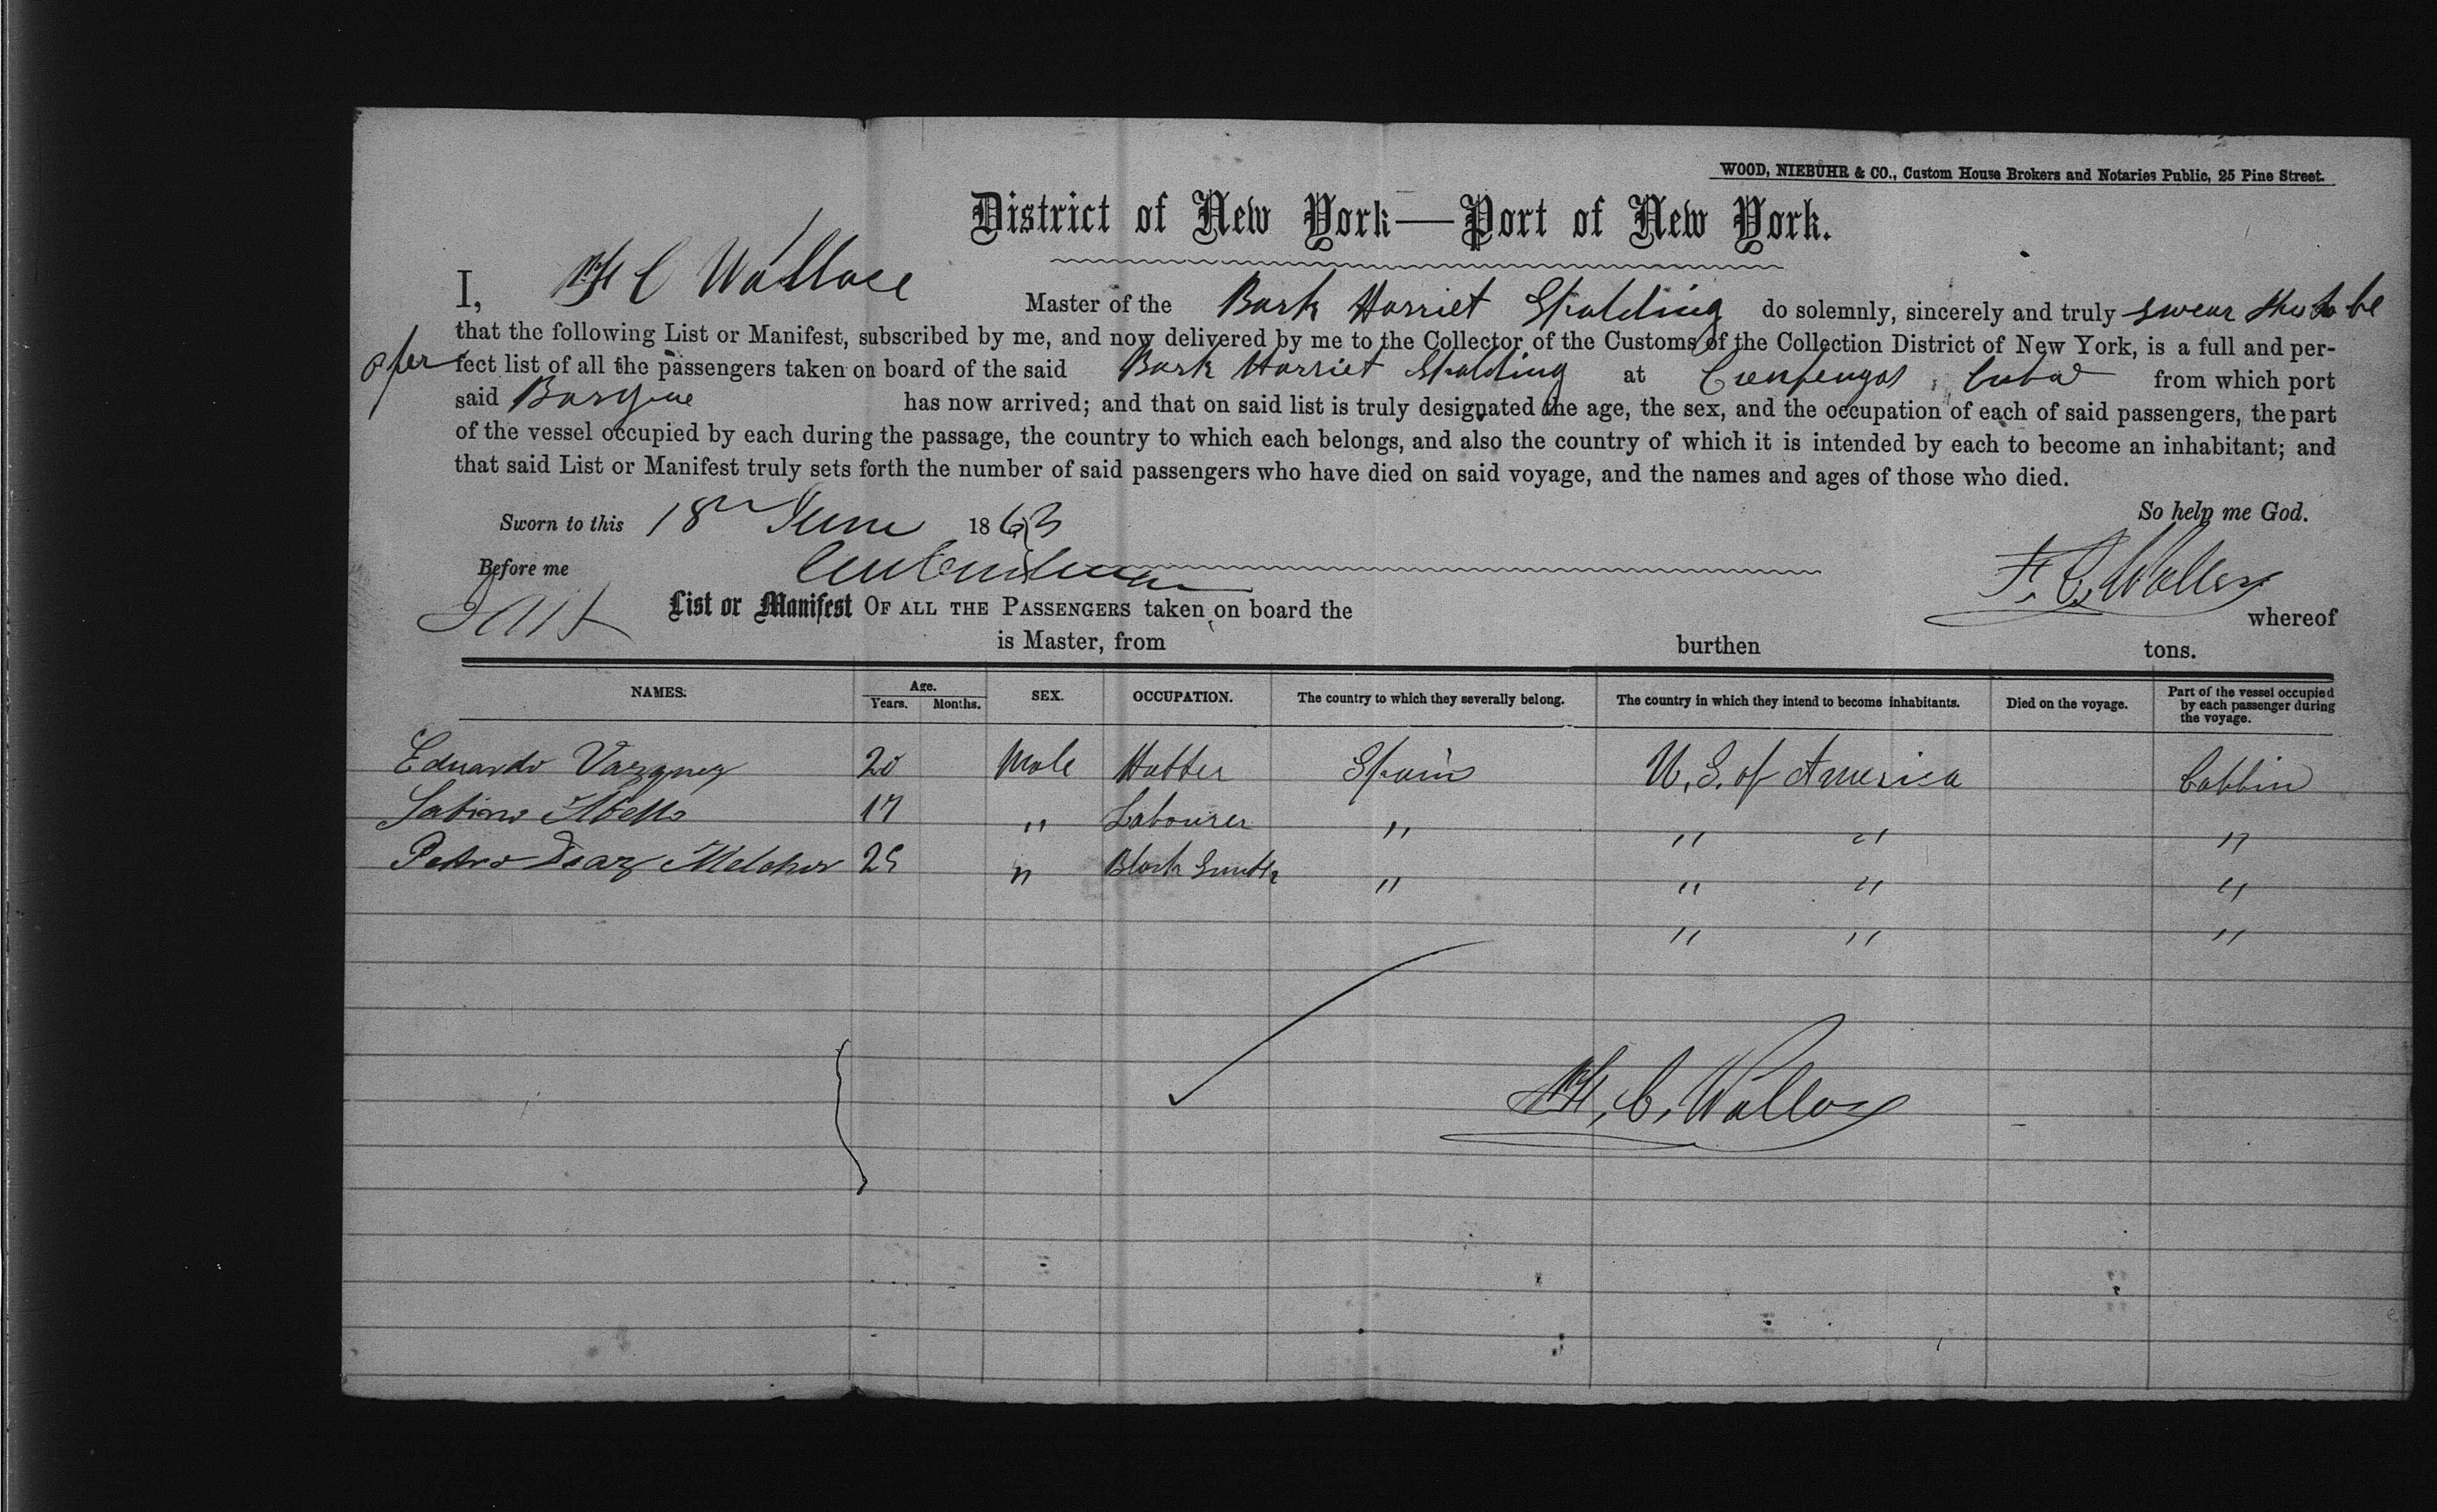 WOOD, NIEBUHR & CO., Custom House Brokers and Notaries Public, 25 Pine Street.
District of New York—Port of New York.
I, C Wallace Master of the Bark Harriet Spalding do solemnly, sincerely and truly swear this to be
that the following List or Manifest, subscribed by me, and now delivered by me to the Collector of the Customs of the Collection District of New York, is a full and per-
a per fect list of all the passengers taken on board of the said Bark Harriet Spalding at Cienfuegos, Cuba from which port
said Barque has now arrived; and that on said list is truly designated the age, the sex, and the occupation of each of said passengers, the part
of the vessel occupied by each during the passage, the country to which each belongs, and also the country of which it is intended by each to become an inhabitant; and
that said List or Manifest truly sets forth the number of said passengers who have died on said voyage, and the names and ages of those who died.
Sworn to this 18th June 1863 So help me God.
Before me C. Wallace
List or Manifest OF ALL THE PASSENGERS taken on board the whereof
is Master, from burthen tons.
NAMES. Age. Years. Months. SEX. OCCUPATION. The country to which they severally belong. The country in which they intend to become inhabitants. Died on the voyage. Part of the vessel occupied by each passenger during the voyage.
Eduardo Vazquez 20 Male Hatter Spain U.S. of America Cabbin
Sabino Abello 17 " Labourer " " " "
Pedro Diaz Melchor 25 " Black Smith " " " "
" " "
C. Wallace